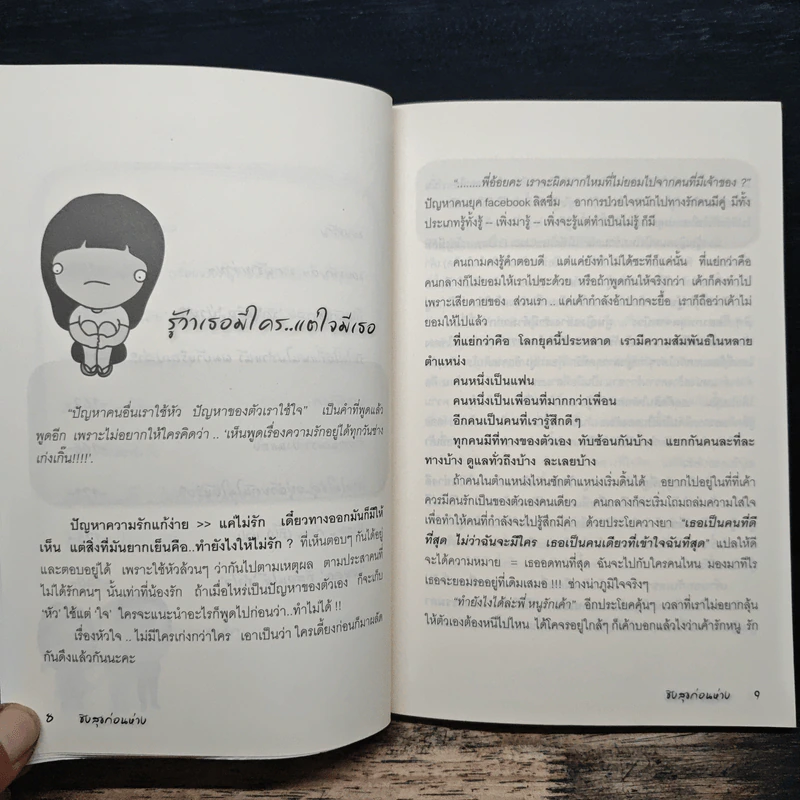 รู้ว่าเธอมีใคร..แต่ใจมีเธอ
“ปัญหาคนอื่นเราใช้หัว ปัญหาของตัวเราใช้ใจ” เป็นคำที่พูดแล้ว
พูดอีก เพราะไม่อยากให้ใครคิดว่า .. ‘เห็นพูดเรื่องความรักอยู่ได้ทุกวันช่าง
เก่งเกิ๊น!!!!’.
ปัญหาความรักแก้ง่าย >> แค่ไม่รัก เดี๋ยวทางออกมันก็มีให้
เห็น แต่สิ่งที่มันยากเย็นคือ..ทำยังไงให้ไม่รัก ? ที่เห็นตอบๆ กันได้อยู่
และตอบอยู่ได้ เพราะใช้หัวล้วนๆ ว่ากันไปตามเหตุผล ตามประสาคนที่
ไม่ได้รักคนๆ นั้นเท่าที่น้องรัก ถ้าเมื่อไหร่เป็นปัญหาของตัวเอง ก็จะเก็บ
‘หัว’ ใช้แต่ ‘ใจ’ ใครจะแนะนำอะไรก็พูดไปก่อนว่า..ทำไม่ได้ !!
เรื่องหัวใจ .. ไม่มีใครเก่งกว่าใคร เอาเป็นว่า ใครเดี้ยงก่อนก็มาผลัด
กันดึงแล้วกันนะคะ
8 ชิบสุขก่อนห่าง
“........พี่อ้อยคะ เราจะผิดมากไหมที่ไม่ยอมไปจากคนที่มีเจ้าของ ?”
ปัญหาคนยุค facebook ลิสซึ่ม อาการป่วยใจหนักไปทางรักคนมีคู่ มีทั้ง
ประเภทรู้ทั้งรู้ – เพิ่งมารู้ – เพิ่งจะรู้แต่ทำเป็นไม่รู้ ก็มี
คนถามคงรู้คำตอบดี แต่แค่ยังทำไม่ได้ซะทีก็แค่นั้น ที่แย่กว่าคือ
คนกลางก็ไม่ยอมให้เราไปซะด้วย หรือถ้าพูดกันให้จริงกว่า เค้าก็คงทำไป
เพราะเสียดายของ ส่วนเรา .. แค่เค้ากำลังอ้าปากจะยื้อ เราก็ถือว่าเค้าไม่
ยอมให้ไปแล้ว
ที่แย่กว่าคือ โลกยุคนี้ประหลาด เรามีความสัมพันธ์ในหลาย
ตำแหน่ง
คนหนึ่งเป็นแฟน
คนหนึ่งเป็นเพื่อนที่มากกว่าเพื่อน
อีกคนเป็นคนที่เรารู้สึกดีๆ
ทุกคนมีที่ทางของตัวเอง ทับซ้อนกันบ้าง แยกกันคนละที่ละ
ทางบ้าง ดูแลทั่วถึงบ้าง ละเลยบ้าง
ถ้าคนในตำแหน่งไหนซักตำแหน่งเริ่มดิ้นได้ อยากไปอยู่ในที่ที่เค้า
ควรมีคนรักเป็นของตัวเองคนเดียว คนกลางก็จะเริ่มโถมถล่มความใส่ใจ
เพื่อทำให้คนที่กำลังจะไปรู้สึกมีค่า ด้วยประโยควางยา “เธอเป็นคนที่ดี
ที่สุด ไม่ว่าฉันจะมีใคร เธอเป็นคนเดียวที่เข้าใจฉันที่สุด” แปลให้ดี
จะได้ความหมาย = เธออดทนที่สุด ฉันจะไปกับใครคนไหน มองมาทีไร
เธอจะยอมรออยู่ที่เดิมเสมอ !!! ช่างน่าภูมิใจจริงๆ
“ทำยังไงได้ล่ะพี่ หนูรักเค้า” อีกประโยคคุ้นๆ เวลาที่เราไม่อยากลุ้น
ให้ตัวเองต้องหนีไปไหน ได้โคจรอยู่ใกล้ๆ ก็เค้าบอกแล้วไงว่าเค้ารักหนู รัก
9